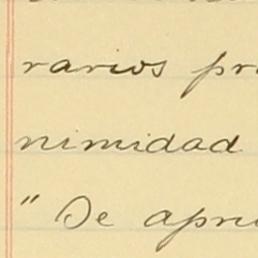 rarios pr
nimidad
" Se apru